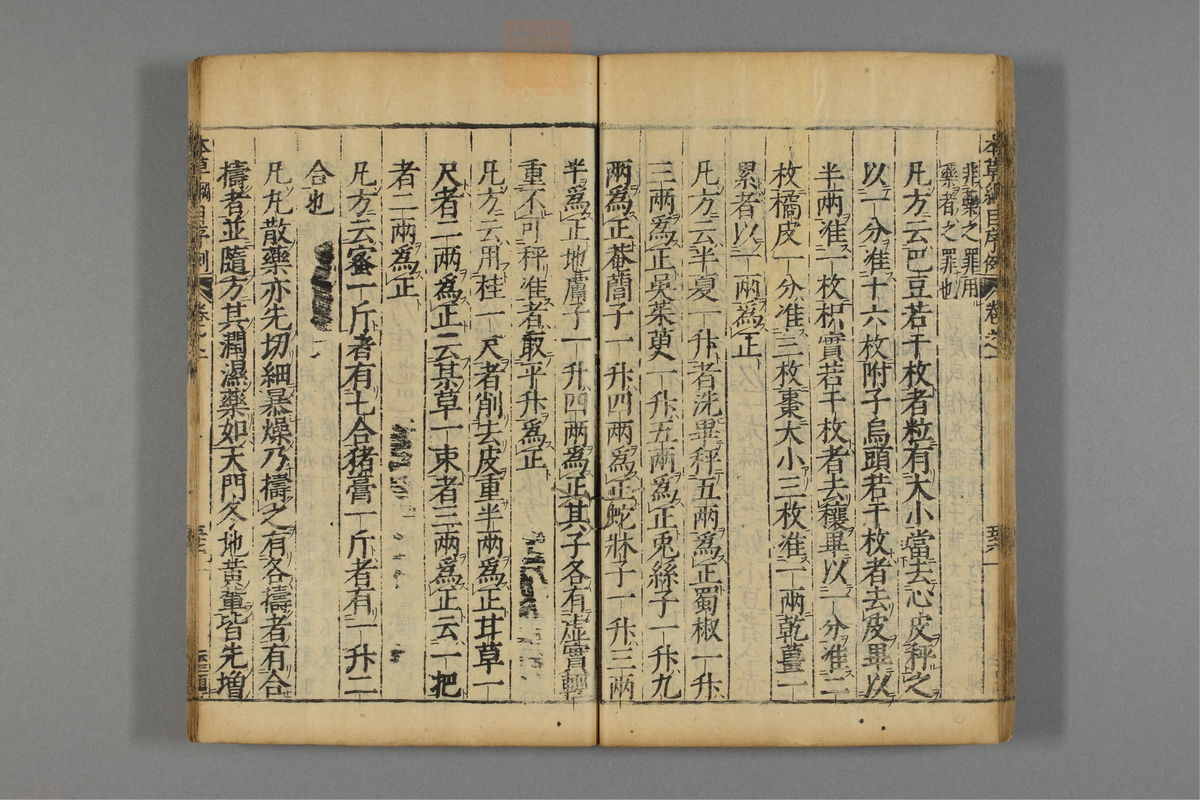 本草綱目序例 卷之一
非藥之罪用
藥者之罪也
凡方云巴豆若干枚者粒有大小當去心皮秤之
以一分准十六枚附子烏頭若干枚者去皮畢以
半兩准一枚枳實若干枚者去穰畢以一分准二
枚橘皮一分准三枚棗大小三枚准一兩乾薑一
累者以一兩爲正
凡方云半夏一升者洗畢秤五兩爲正蜀椒一升
三兩爲正吳茱萸一升五兩爲正兎絲子一升九
兩爲正菴䕡子一升四兩爲正蛇牀子一升三兩
半爲正地膚子一升四兩爲正其子各有虛實輕
重不可秤准者取平升爲正
凡方云用桂一尺者削去皮重半兩爲正甘草一
尺者二兩爲正云某草一束者三兩爲正云一把
者二兩爲正
凡方云蜜一斤者有七合猪膏一斤者有一升二
合也
凡凡散藥亦先切細暴燥乃擣之有各擣者有合
擣者並隨方其潤濕藥如天門冬地黃軰皆先增
本草綱目序例